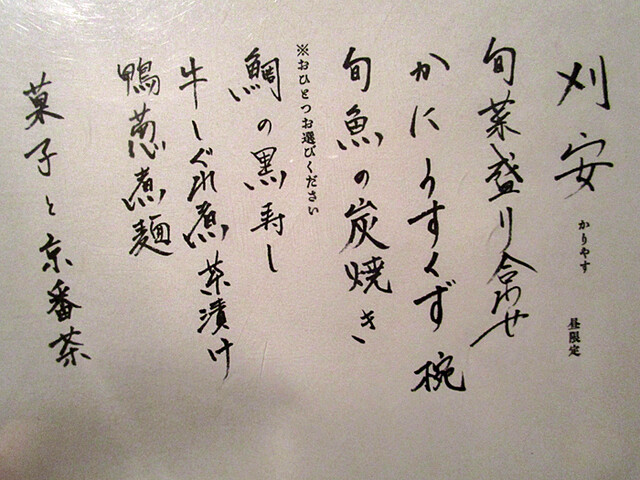 刈安 かりやす 昼限定
旬菜盛り合わせ
かにうすくず椀
旬魚の炭焼き
※おひとつお選びください
鯛の黒寿し
牛しぐれ煮茶漬け
鴨葱煮麺
菓子と京番茶